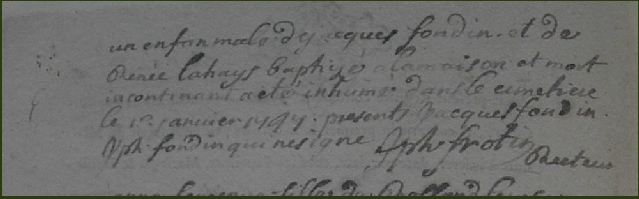 un enfan male de jacques fondin et de
Renée lahays baptisé a la maison et mort
incontinant a eté inhumé dans le cimetiere
le 12 janvier 1747 presents Jacques fondin
Jph fondin qui ne signe Jph frotin Recteur